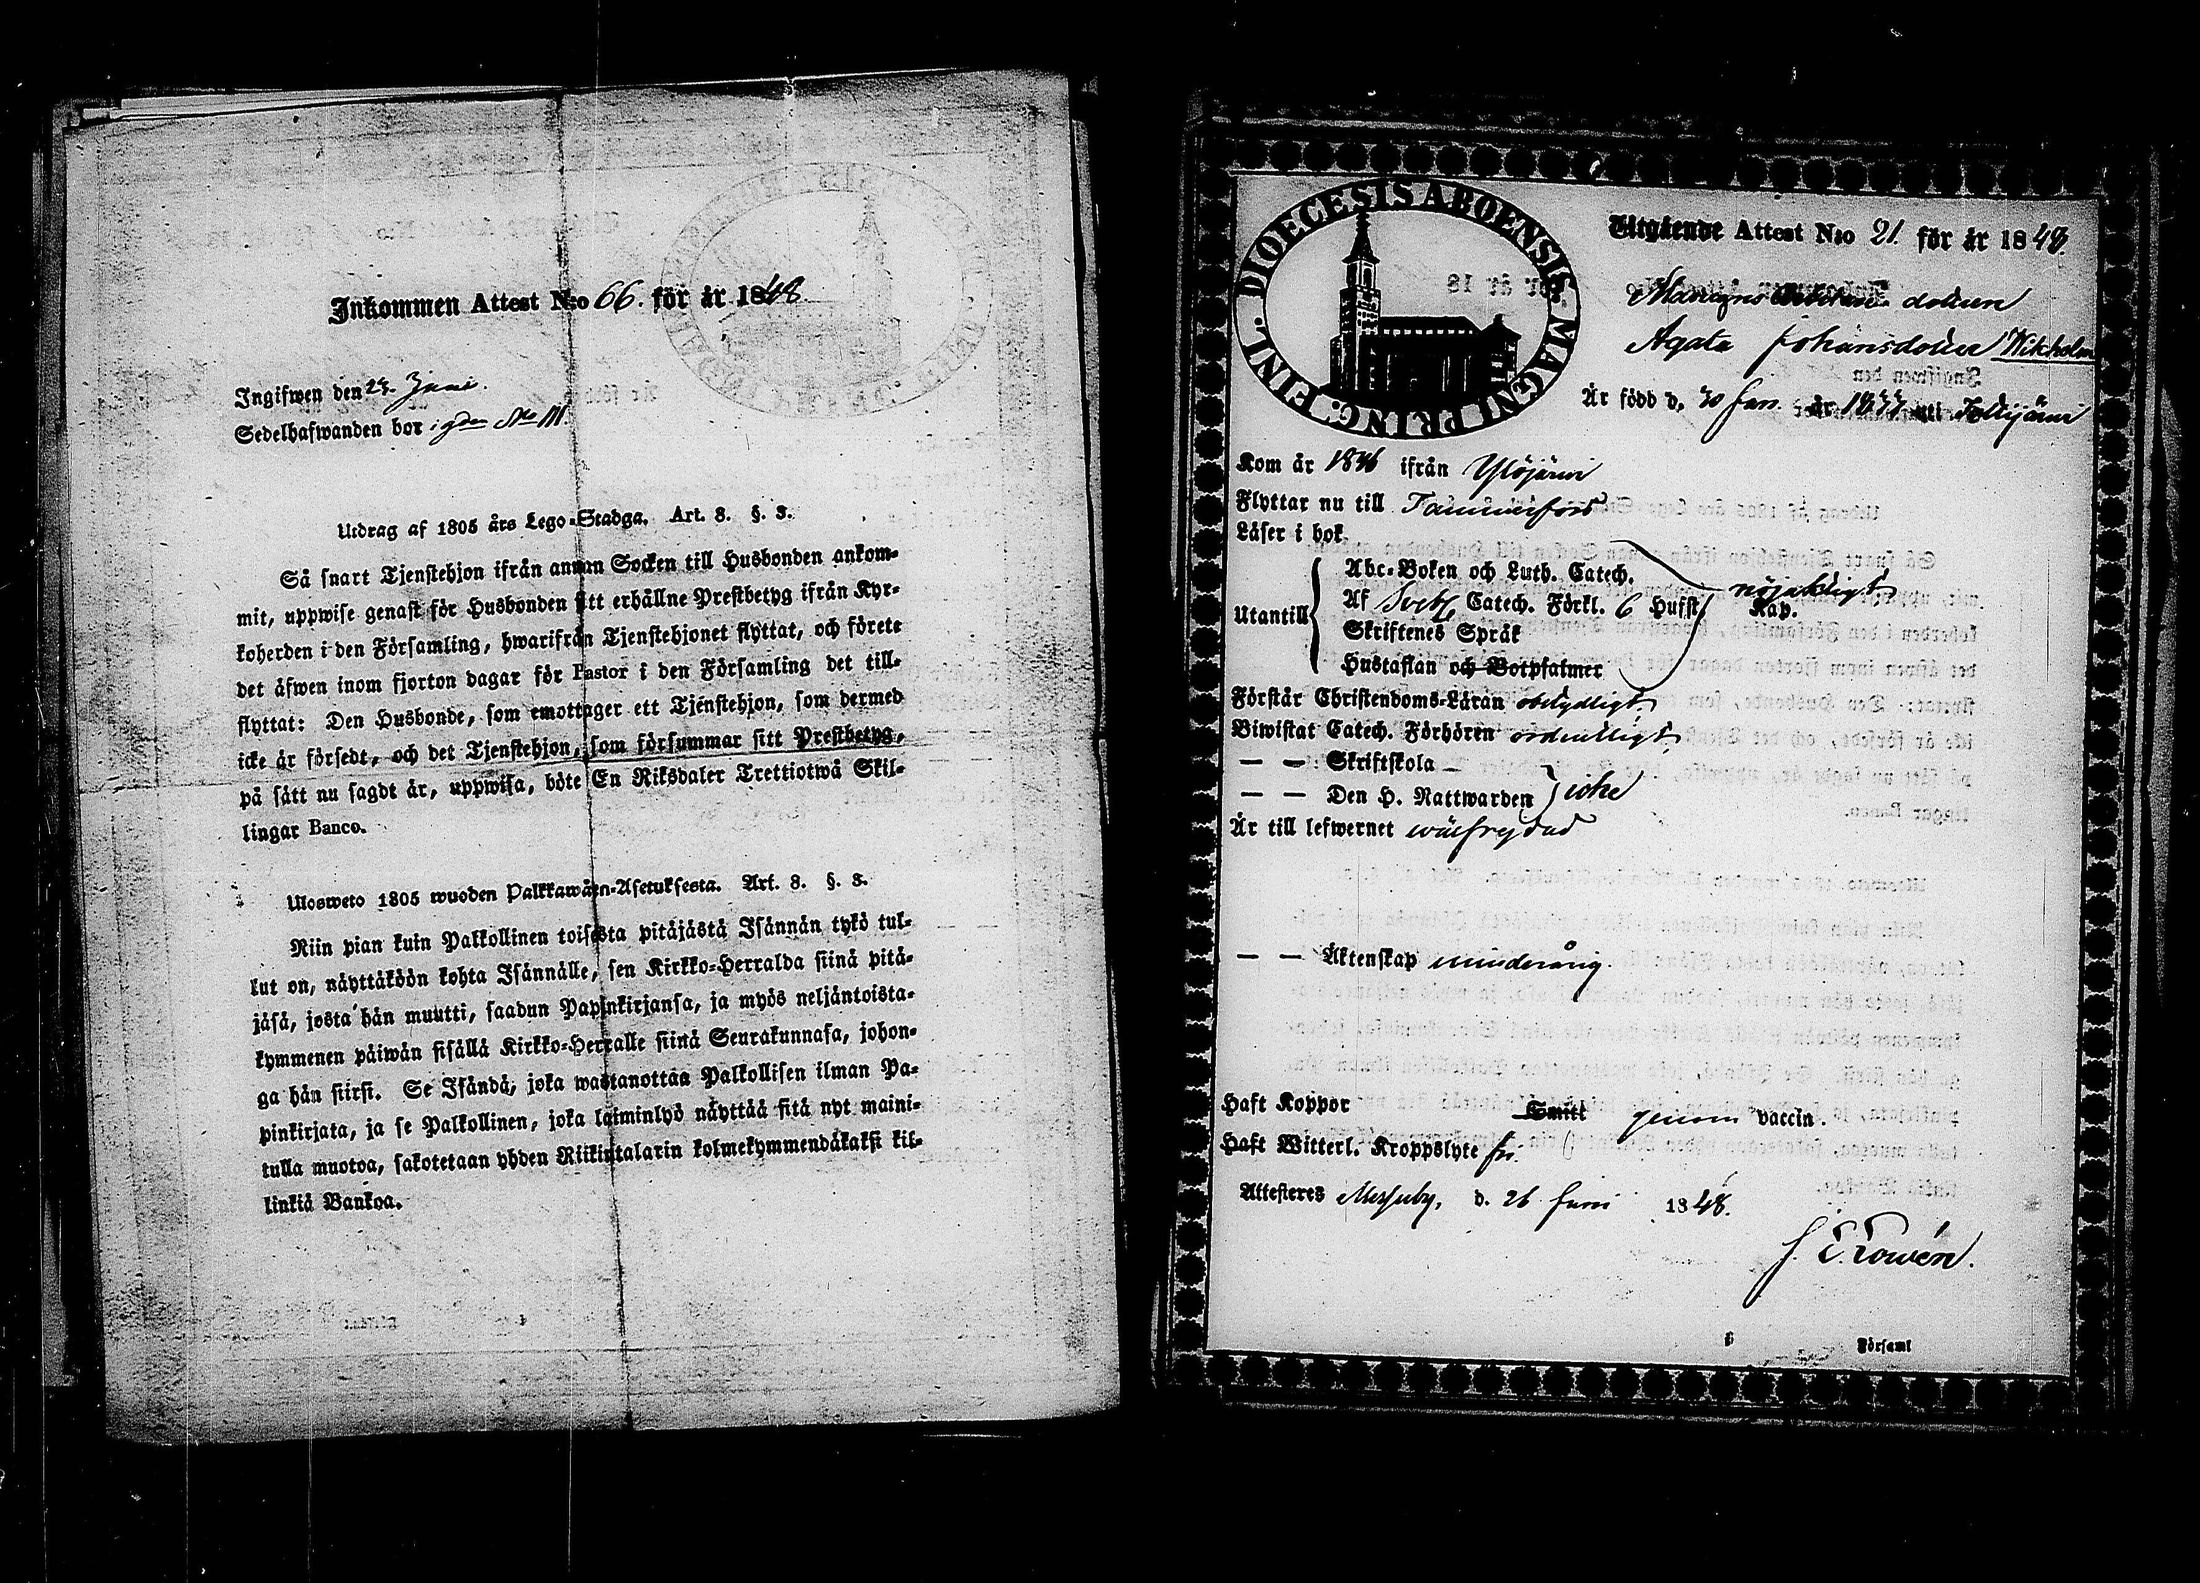 Inkommen Attest N:o 66. för år 1848.
Ingifwen den 23. Juni.
Sedelhafwanden bor i
Utdrag af 1805 års Lego-Stadga. Art. 8. §. 3.
Så snart Tjenstehjon ifrån annan Socken till Husbonden ankom-
mit, uppwise genast för Husbonden sitt erhållne Prestbetyg ifrån Kyr-
koherden i den Församling, hwarifrån Tjenstehjonet flyttat, och förete
det äfwen inom fjorton dagar för Pastor i den Församling det till-
flyttat: Den Husbonde, som emottager ett Tjenstehjon, som dermed
icke är försedt, och det Tjenstehjon, som försummar sitt Prestbetyg,
på sätt nu sagdt är, uppwisa, böte En Riksdaler Trettiotwå Skil-
lingar Banco.
Ulosweto 1805 wuoden Palkkawäen-Asetuksesta. Art. 8. §. 3.
Niin pian kuin Palkollinen toisesta pitäjästä Isännän tykö tul-
lut on, näyttäköön kohta Isännälle, sen Kirkko-Herralda siinä pitä-
jäsä, josta hän muutti, saadun Papinkirjansa, ja myös neljäntoista-
kymmenen päiwän sisällä Kirkko-Herralle siinä Seurakunnasa, johon-
ga hän siirsi. Se Isändä, joka wastanottaa Palkollisen ilman Pa-
pinkirjata, ja se Palkollinen, joka laiminlyö näyttää sitä nyt maini-
tulla muotoa, sakotetaan yhden Riikintalarin kolmekymmendäkaksi kil-
linkiä Bankoa.
DIOECESIS ABOENSIS MAGNI PRINC. FINL.
Utgående Attest N:o 21. för år 1848.
dottren
Agata Johansdotter Wikholm
Är född d. 30 Jan. år 1833 uti
Kom år 1846 ifrån Ylöjärvi
Flyttar nu till Tammerfors
Läser i bok
Utantill
Abc-Boken och Luth. Catech.
Af Sveb. Catech. Förkl. 6 Hufst. Kap. nöjaktigt.
Skriftenes Språk
Hustaflan och Botpsalmer
Förstår Christendoms-Läran obetydligt.
Biwistat Catech. Förhören ordentligt.
— — Skriftskola —
— — Den H. Nattwarden icke
Är till lefwernet wälfrejdad
— — Äktenskap minderårig.
Haft Koppor Smitt genom vaccin.
Haft Witterl. Kroppslyte fri.
Attesteres Messuby, d. 26 Juni 1848.
Församl